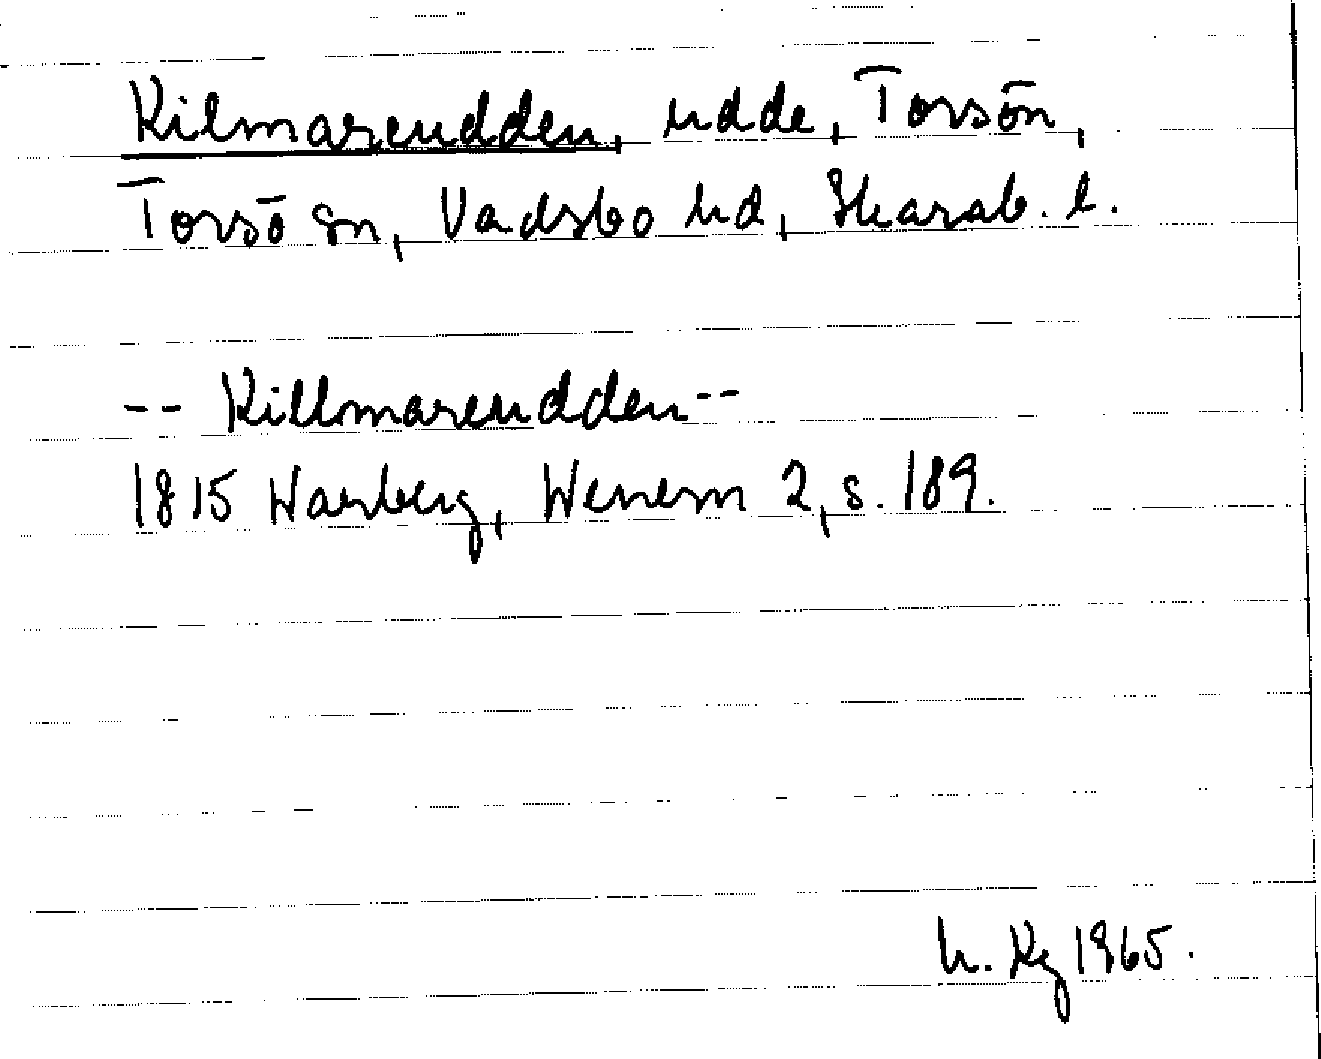 Kilmareudden, udde, Torsön,
Torsö sn, Vadsbo hd, Skarab. l.
-- Killmareudden --
1815 Warberg, Wenern 2, s. 189.
h. Kg 1965.